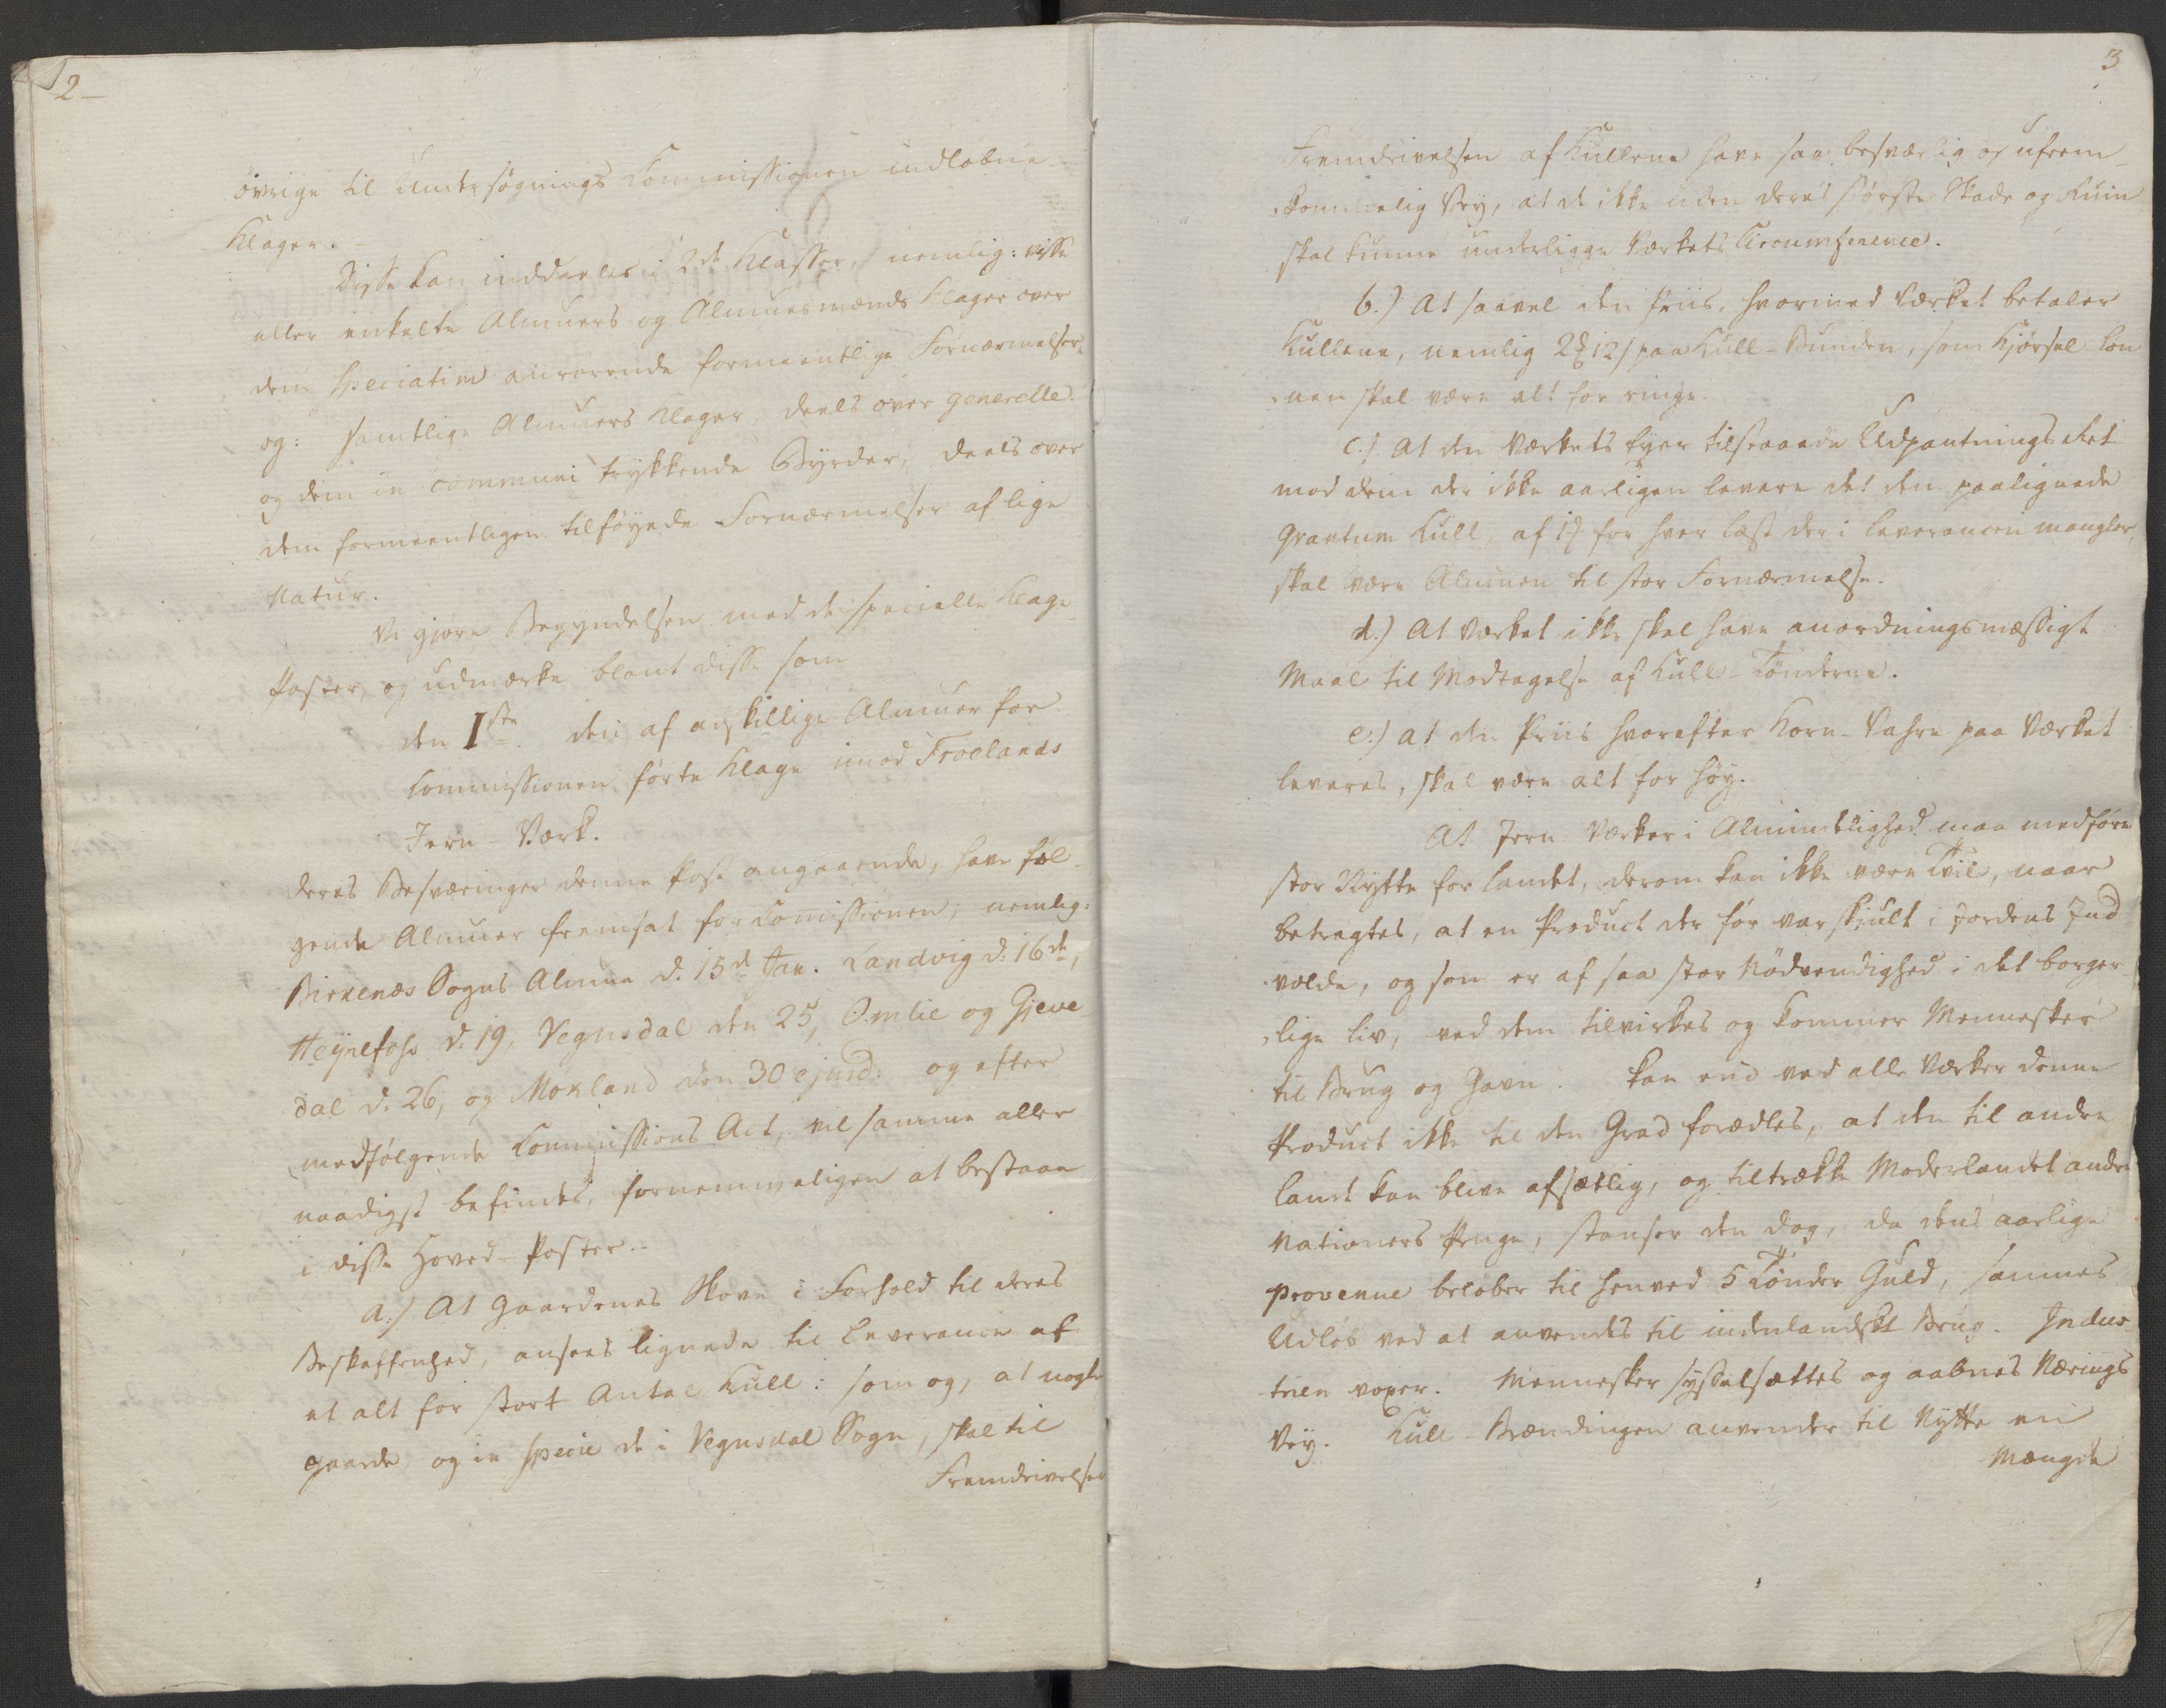 2
övrige til Undersøgnings Commissionen indløbne
Klager.
Disse kan inddeeles i 2de Klasser, nemlig: visse
eller enkelte Almuers og Almuesmænds Klager over
dem speciatim anrørende formeentlige Fornærmelser
og: samtlige Almuers Klager, deels over generelle
og dem in communi trykkende Byrder, deels over
dem formeentligen tilføyede Fornærmelser af lige
Natur.
Vi gjøre Begyndelsen med de specielle Klage
Poster, og udmærke blant disse som
den Iste den af adskillige Almuer for
Commissionen førte Klage imod Froelands
Jern-Værk.
Deres Besværinger denne Post angaaende, have føl-
gende Almuer fremsat for Comissionen, nemlig:
Birkenæs Sogns Almue d. 15d Jan. Landvig d: 16de,
Heyrefoss d. 19, Vegusdal den 25, Omlie og Gjeve
dal d. 26, og Mokland den 30 ejusd: og efter
medfølgende Commissions Act, vil samme aller
naadigst befindes, fornemmeligen at bestaae
i disse Hoved-Poster.-
a.) At Gaardenes Skove i Forhold til deres
Beskaffenhed, ansees lignede til Leverance af
et alt for stort Antal Kull: som og, at nogle
Gaarde, og in specie de i Vegusdal Sogn, skal til
Fremdrivelsen
3
Fremdrivelsen af Kullene have saa besværlig og ufrem-
kommelig Vey, at de ikke uden deres største Skade og Ruin
skal kunne underligge Værkets Circumference.
b.) At saavel den Priis, hvormed Værket betaler
Kullene, nemlig 2 12 s paa Kull-Bunden, som Kjørsel-Løn
nen skal være alt for ringe.
c.) At den Værkets Eyer tilstaaede Udpantnings Ret
mod dem der ikke aarligen levere det dem paalignede
Qvantum Kull, af 1 for hver Læst der i Leverancen mangler,
skal være Almuen til stor Fornærmelse.
d.) At Værket ikke skal have anordningsmæssigt
Maal til Modtagelse af Kull-Tønderne.
e.) at den Priis hvorefter Korn-Vahre paa Værket
leveres, skal være alt for høy.
At Jern Værker i Almindelighed maa medføre
stor Nytte for Landet, derom kan ikke være Tvil, naar
betragtes, at en Product der før var skiult i Jordens Ind
volde, og som er af saa stor Nödvendighed i det borger
lige Liv, ved dem tilvirkes og kommer Mennesker
til Brug og Gavn. Kan end ved alle Værker denne
Product ikke til den Grad forædles, at den til andre
Lande kan blive afsættlig, og tiltrække Moderlandet andre
Nationers Penge, standser den dog, da dens aarlige
provenue beløber til henved 5 Tønder Guld, sammes
Udløb ved at anvendes til indenlandskt Brug. Indus-
trien voxer. Mennesker sysselsættes og aabnes Nærings
Vey. Kull-Brændingen anvender til Nytte en
Mængde